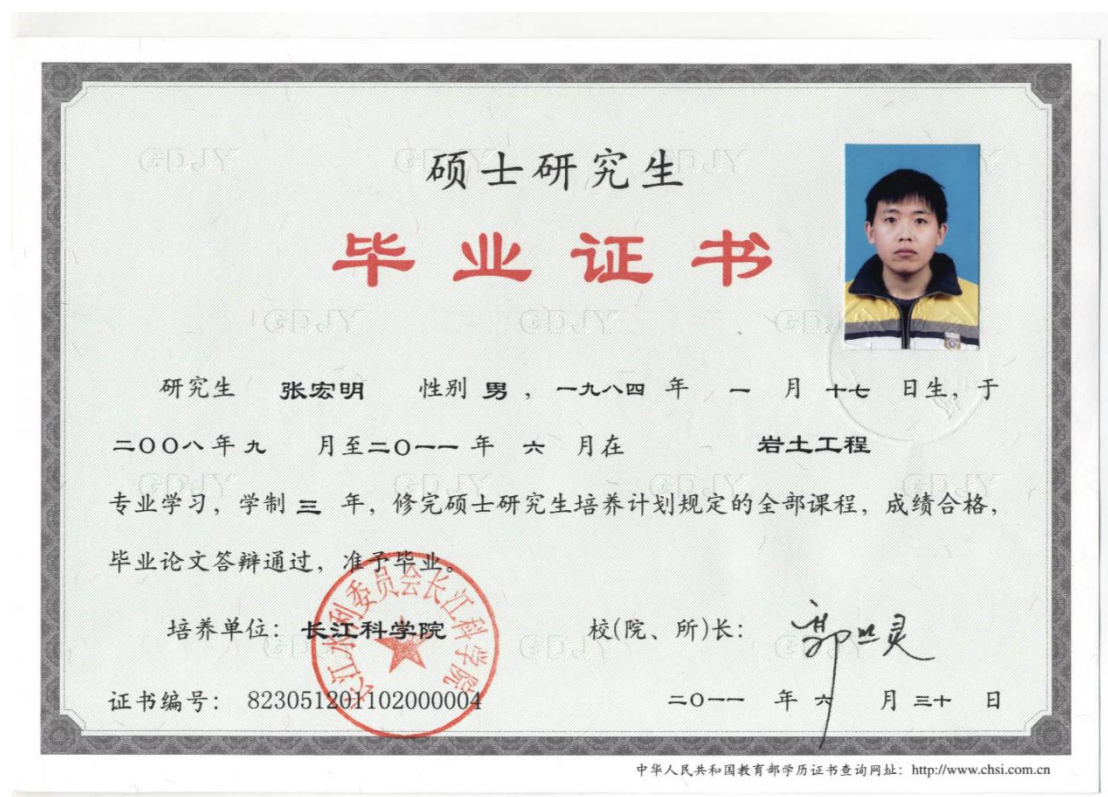 硕士研究生
毕业证书
研究生 张宏明 性别 男，一九八四 年 一 月 十七 日生，于
二〇〇八年九 月至二〇一一年 六 月在 岩土工程
专业学习，学制 三 年，修完硕士研究生培养计划规定的全部课程，成绩合格，
毕业论文答辩通过，准予毕业。
长江水利委员会长江科学院
培养单位：长江科学院 校(院、所)长：
证书编号：823051201102000004 二〇一一 年 六 月 三十 日
中华人民共和国教育部学历证书查询网址：http://www.chsi.com.cn